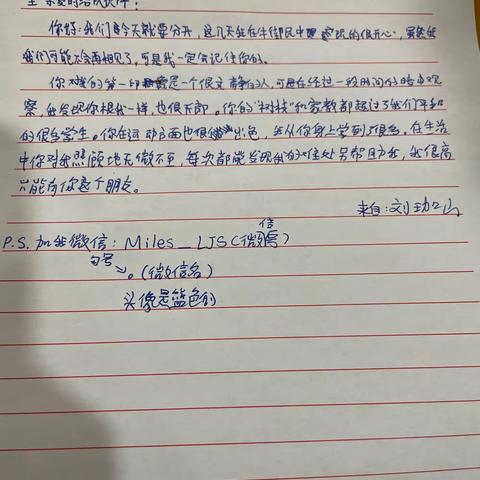 至亲爱的结队伙伴：
你好！我们今天就要分开，这几天我在牛街民中玩的很开心，虽然
我们可能不会再相见了，可是我一定会记住你的。
你给我的第一印象是一个很文静的人，可在经过一段时间的
察，我发现你跟我一样，也很开朗。你的"球技"和家教都超过了我们年级
的很多学生。你在运动方面也很出色，我从你身上学到了很多。在生活
中你对我照顾地无微不至，每次都能发现我的难处另帮助我，我很高
兴能有你这个朋友。
来自：刘
P.S. 加我微信：Miles_LJS（微信号）
句号→。（微信名）
头像是蓝色的